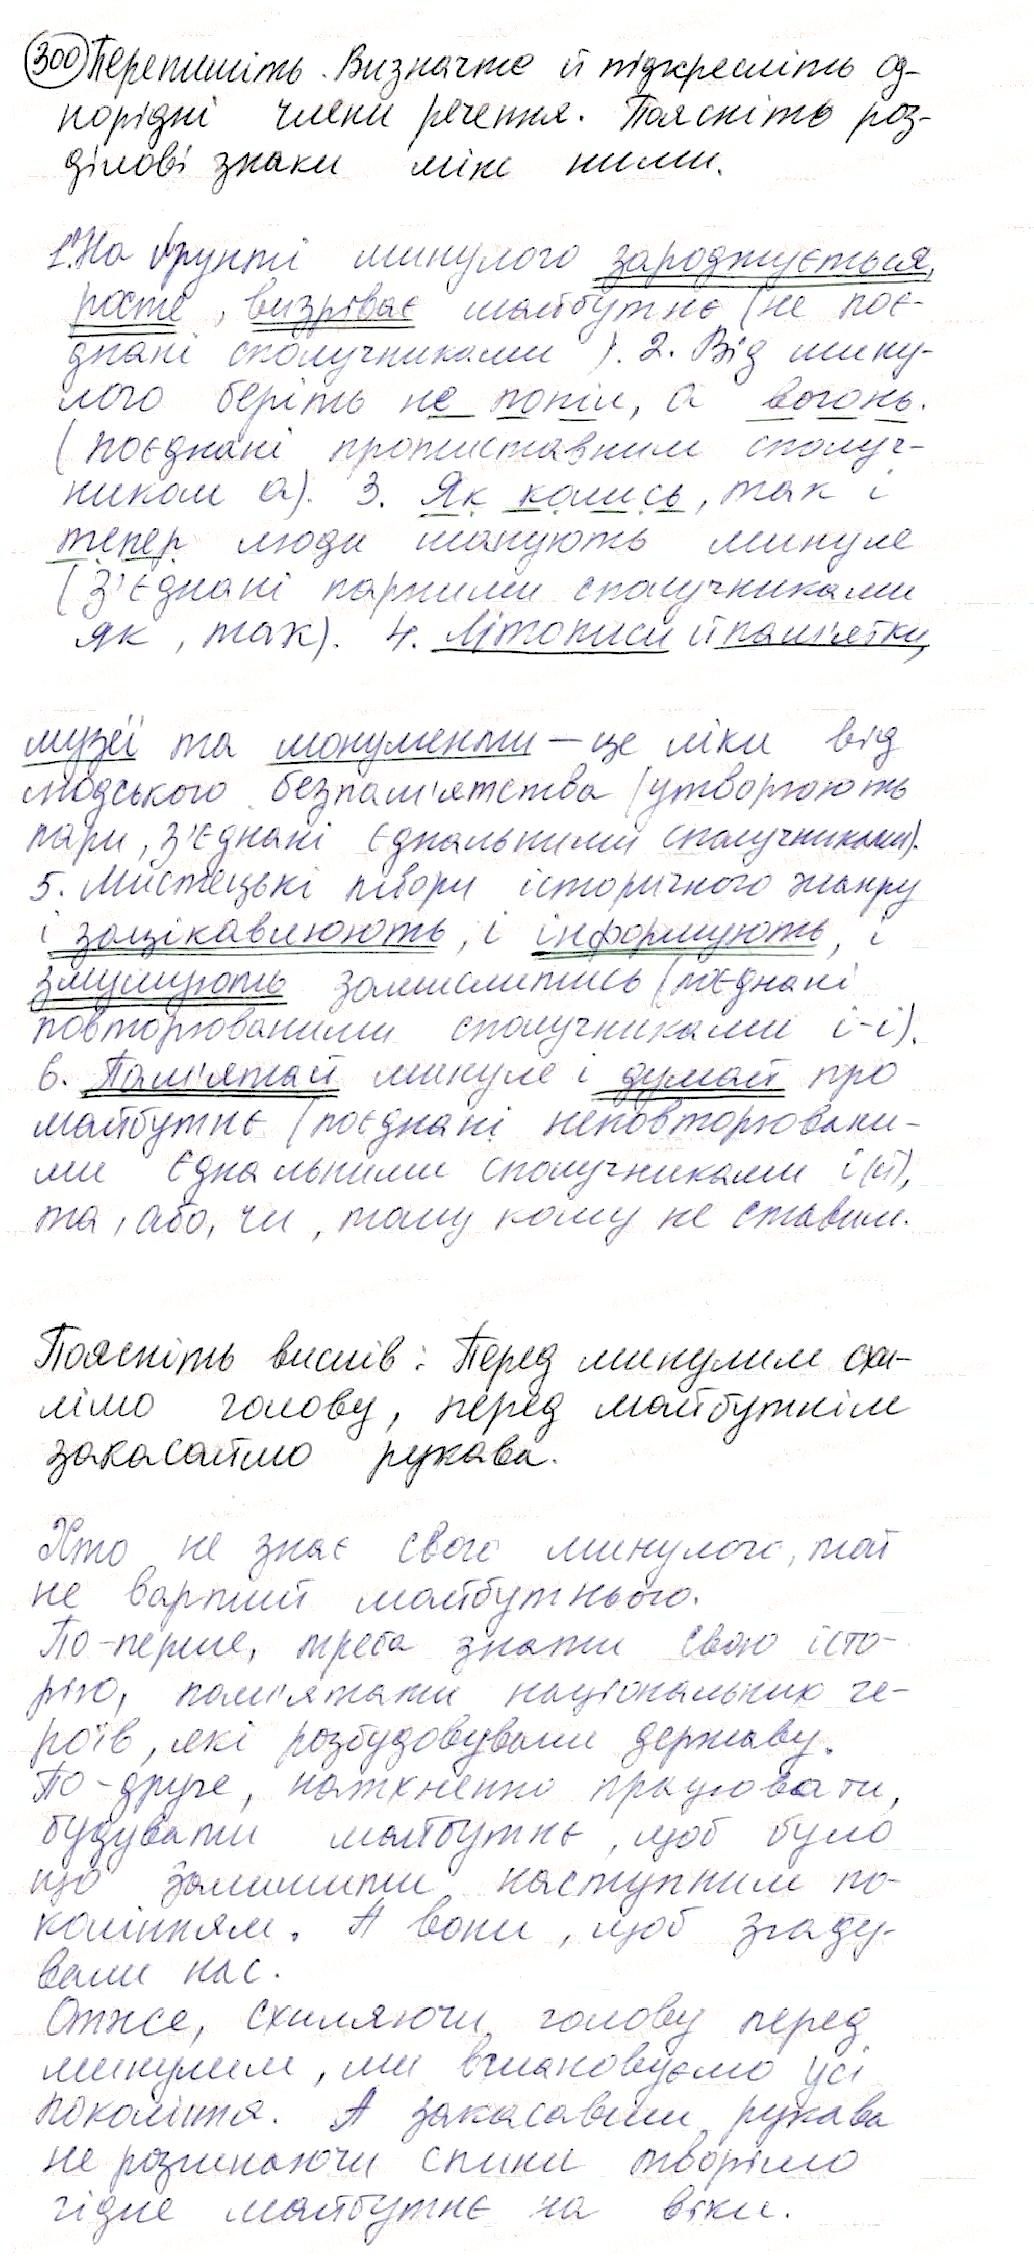 300 Перепишіть. Визначте й підкресліть од-
норідні члени речення. Поясніть роз-
ділові знаки між ними.
1. На ґрунті минулого зароджується,
росте, визріває майбутнє (не поє-
днані сполучниками). 2. Від мину-
лого беріть не попіл, а вогонь.
(поєднані протиставним сполуч-
ником а). 3. Як колись, так і
тепер люди шанують минуле
(З'єднані парними сполучниками
як, так). 4. Літописи й пам'ятки,
музеї та монументи – це ліки від
людського безпам'ятства (утворюють
пари, з'єднані єднальними сполучниками).
5. Мистецькі твори історичного жанру
і зацікавлюють, і інформують, і
змушують замислитись (поєднані
повторюваними сполучниками і-і).
6. Пам'ятай минуле і думай про
майбутнє (поєднані неповторювани-
ми єднальними сполучниками і(й),
та, або, чи, тому кому не ставим.
Поясніть вислів: Перед минулим схи-
лімо голову, перед майбутнім
закасаймо рукава.
Хто не знає свого минулого, той
не вартий майбутнього.
По-перше, треба знати свою істо-
рію, пам'ятати національних ге-
роїв, які розбудовували державу.
По-друге, натхненно працювати,
будувати майбутнє, щоб було
що залишити наступним по-
колінням. А вони, щоб згаду-
вали нас.
Отже, схиляючи голову перед
минулим, ми вшановуємо усі
покоління. А закасавши рукава
не розгинаючи спини творімо
гідне майбутнє на віки.